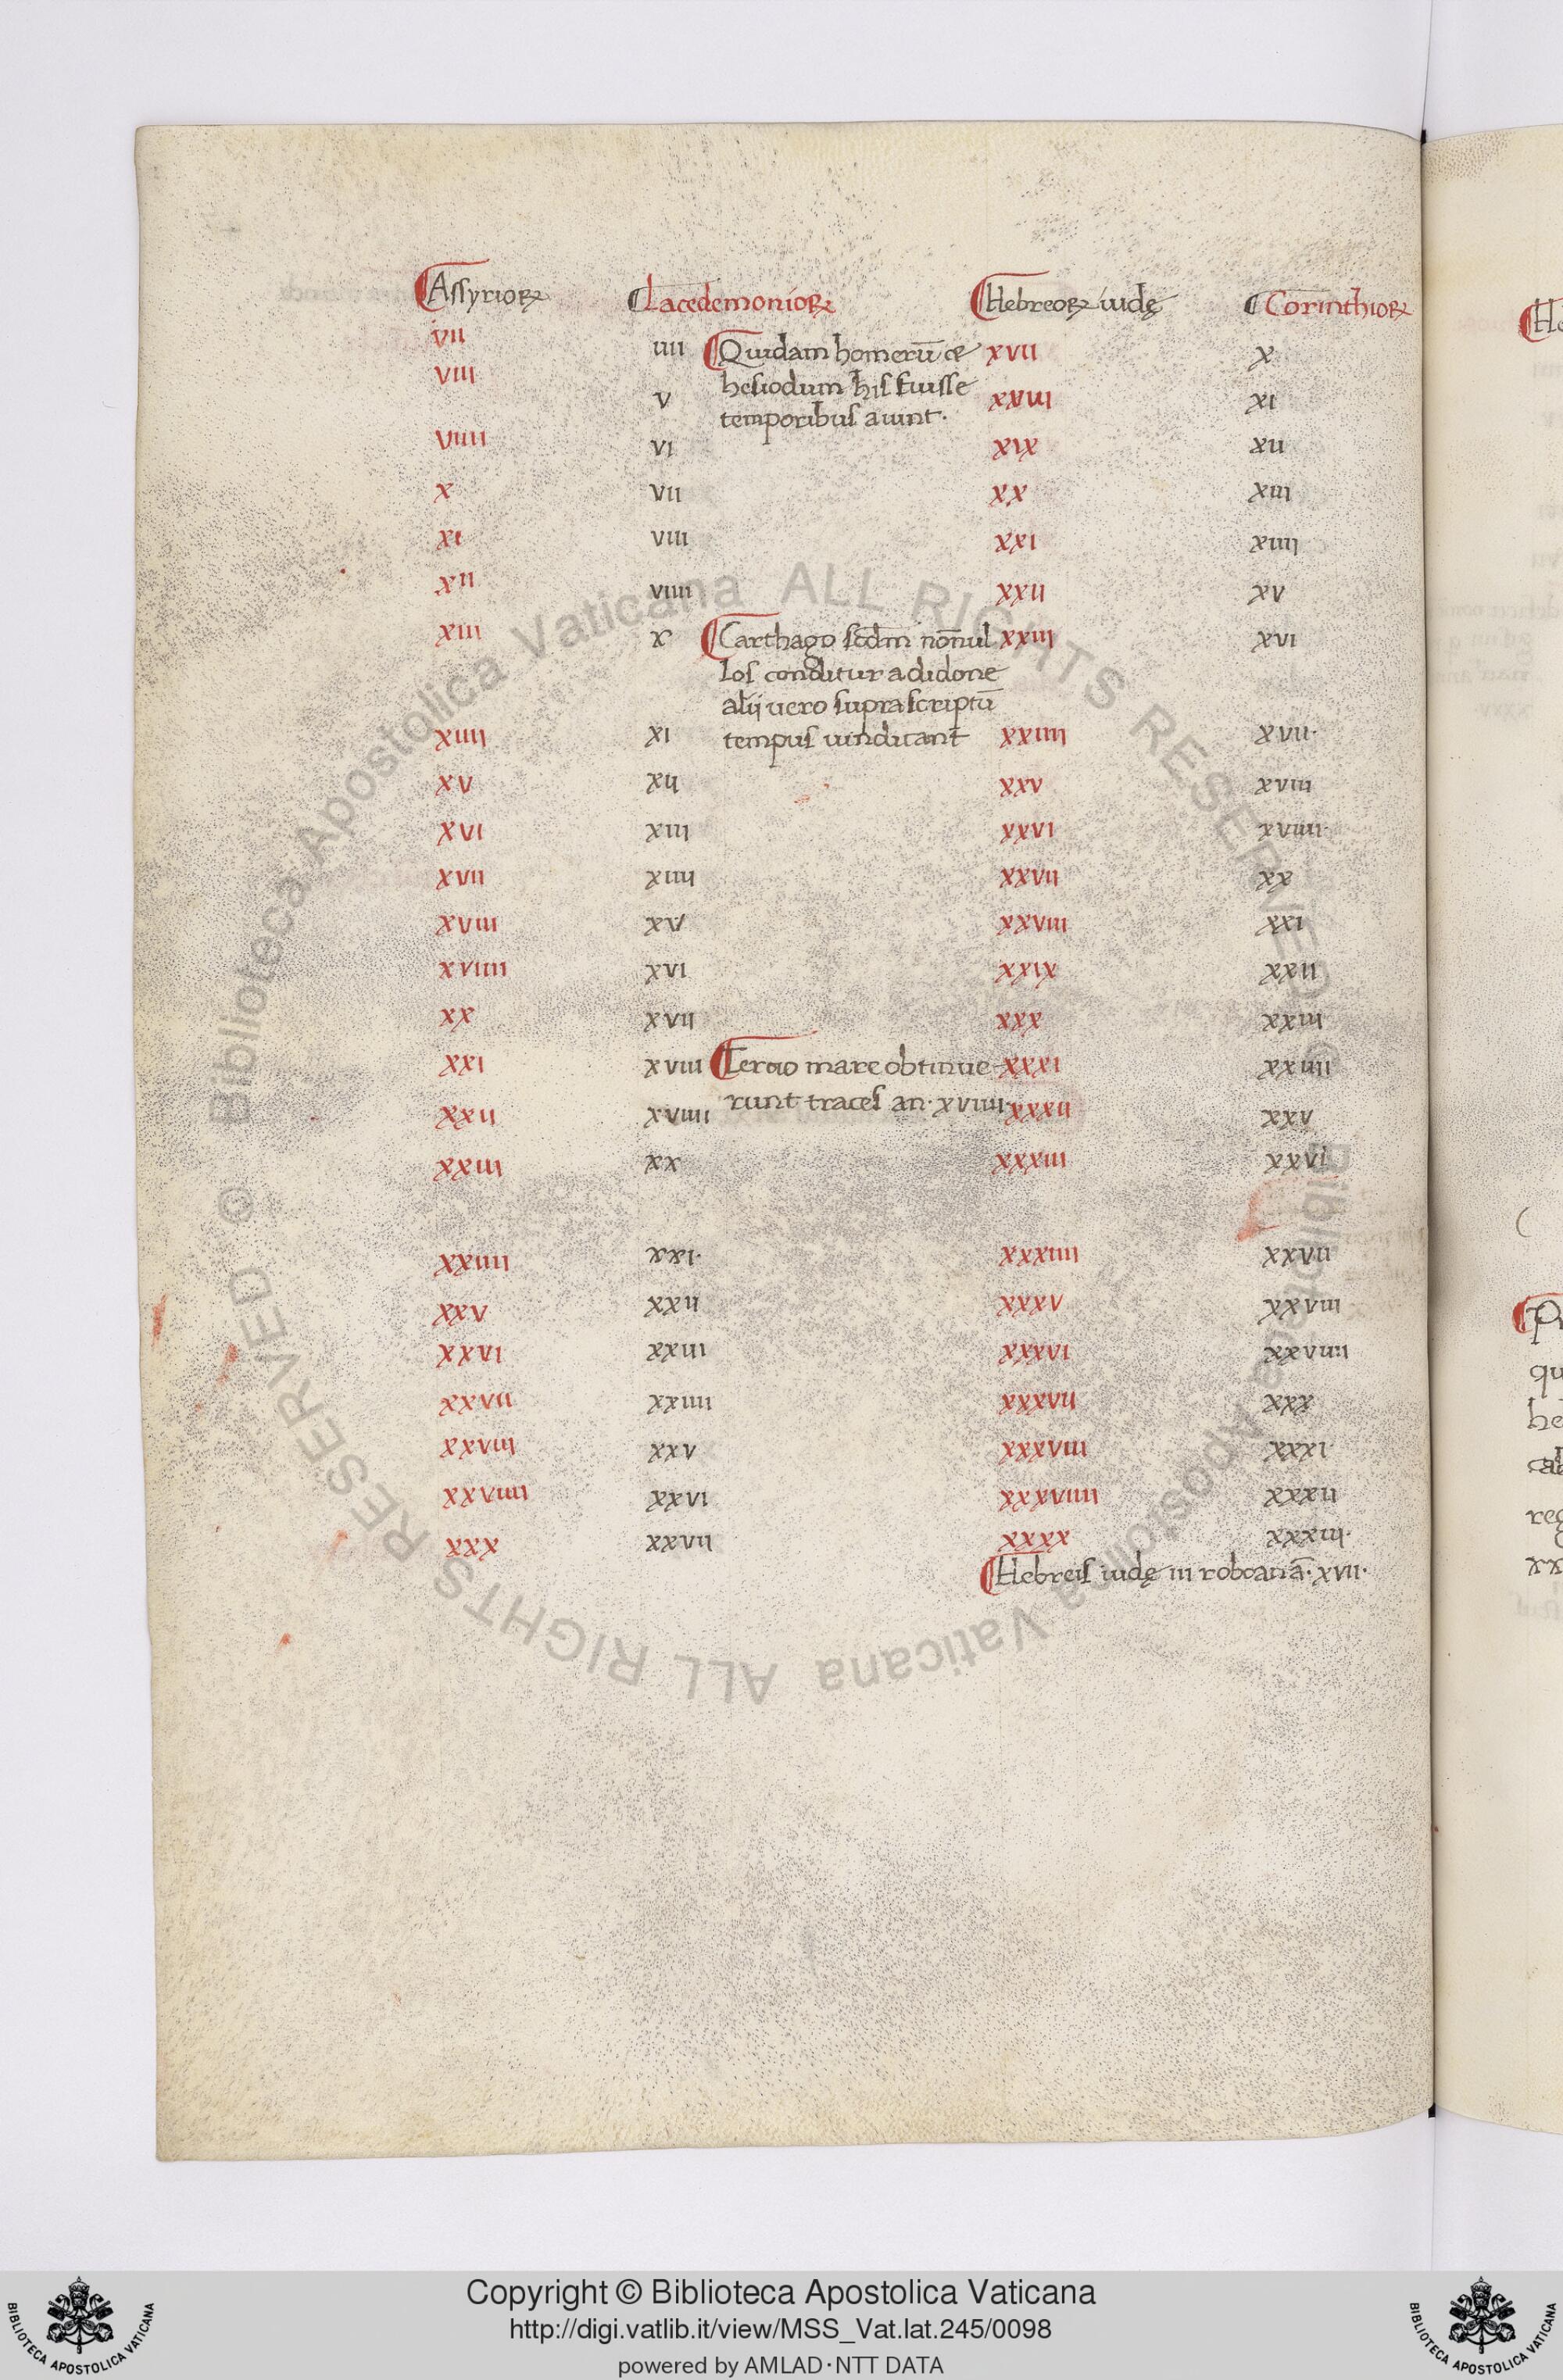 Assyrioꝝ Lacedemonioꝝ Hebreoꝝ iudę Corinthioꝝ
vii iiii Quidam homerū & xvii x
viii hesiodum his fuisse
v temporibus aiunt. xviii xi
viiii vi xix xii
x vii xx xiii
xi viii xxi xiiii
xii viiii xxii xv
xiii x Carthago scdm nōnul xxiii xvi
los conditur a didone
alij uero suprascriptū
xiiii xi tempus uindicant xxiiii xvii.
xv xii xxv xviii
xvi xiii xxvi xviiii.
xvii xiiii xxvii xx
xviii xv xxviii xxi
xviiii xvi xxix xxii
xx xvii xxx xxiii
xxi xviii Tercio mare obtinue xxxi xxiiii
xxii xviiii runt traces an. xviiii. xxxii xxv
xxiii xx xxxiii xxvi
xxiiii xxi. xxxiiii xxvii
xxv xxii xxxv xxviii
xxvi xxiii xxxvi xxviiii
xxvii xxiiii xxxvii xxx
xxviii xxv xxxviii xxxi.
xxviiii xxvi xxxviiii xxxii
xxx xxvii xxxx xxxiii.
Hebreis iudę iii roboan ā. xvii.
Copyright © Biblioteca Apostolica Vaticana
http://digi.vatlib.it/view/MSS_Vat.lat.245/0098
powered by AMLAD·NTT DATA
BIBLIOTECA APOSTOLICA VATICANA
BIBLIOTECA APOSTOLICA VATICANA
© Biblioteca Apostolica Vaticana ALL RIGHTS RESERVED
© Biblioteca Apostolica Vaticana ALL RIGHTS RESERVED